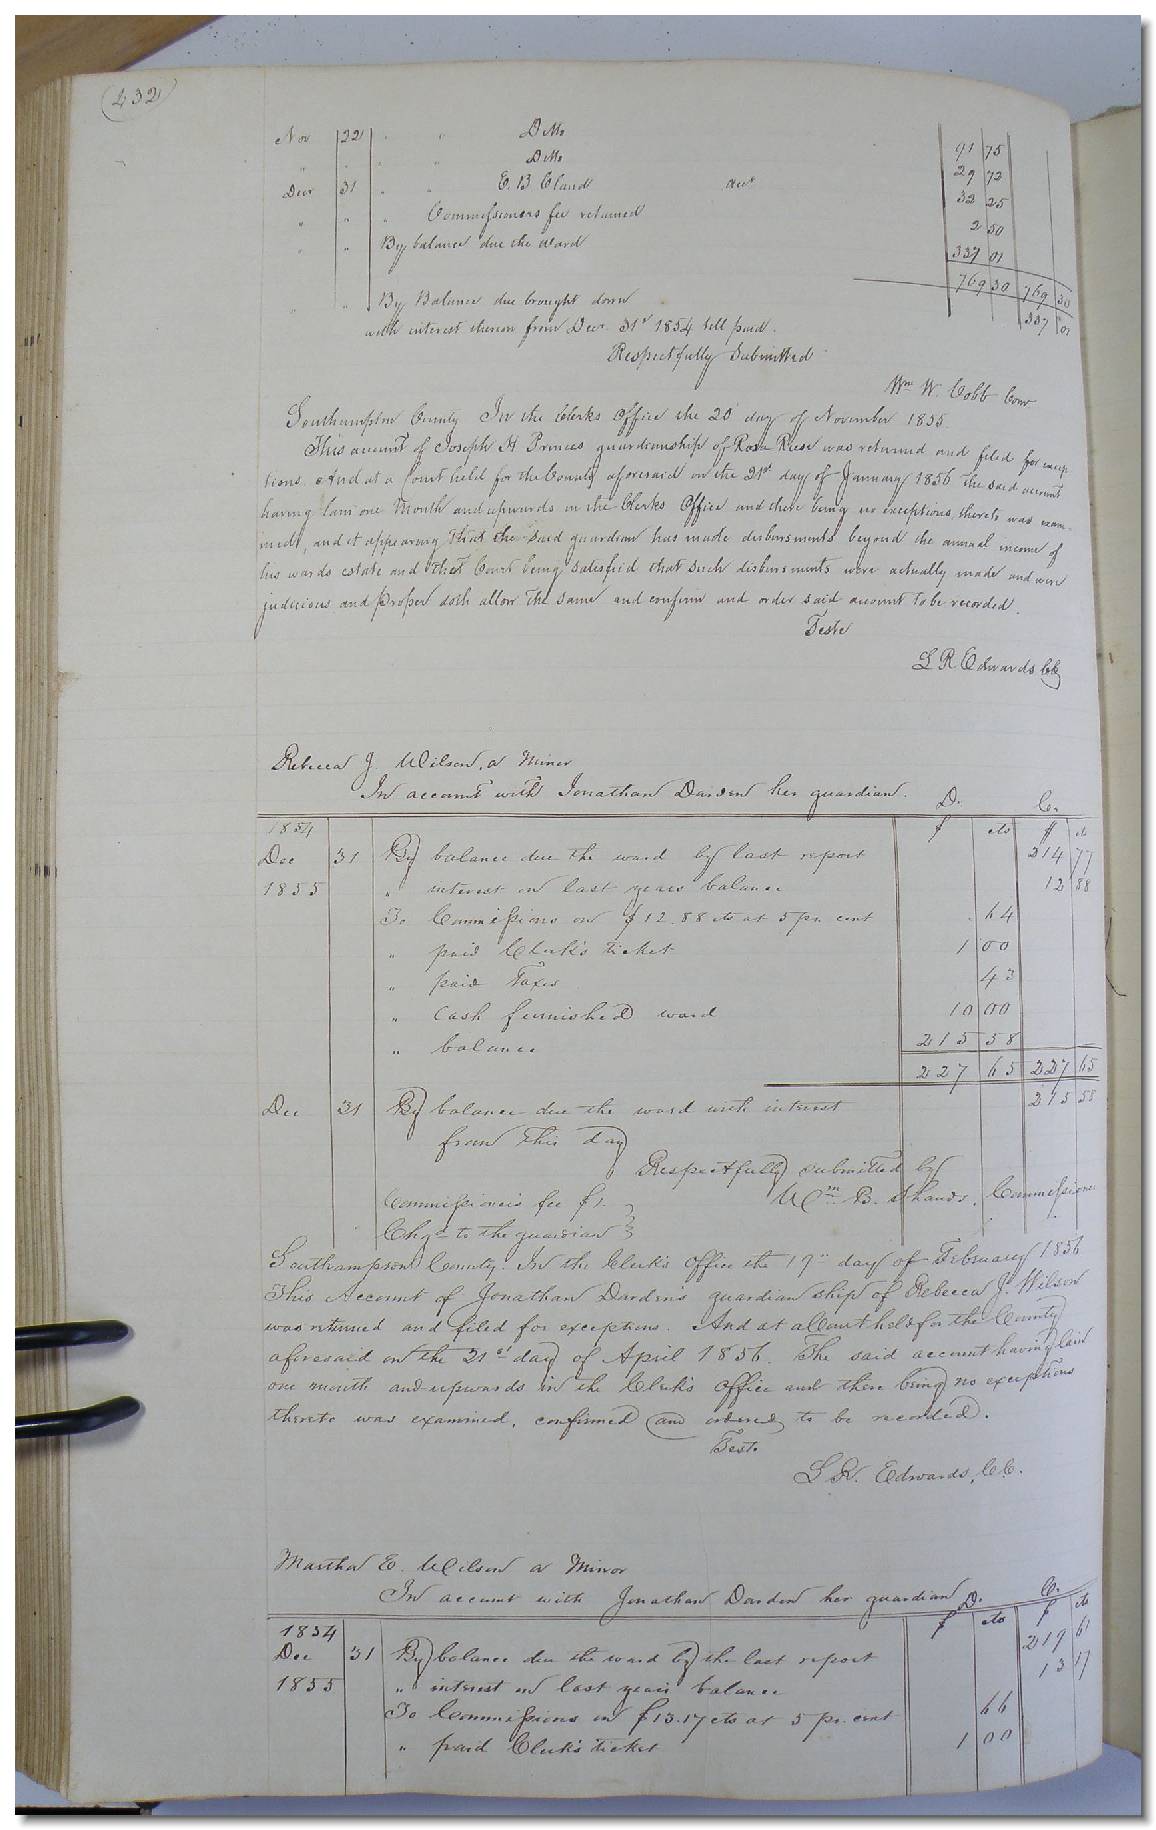 432
Nov 22 " " Ditto 91 75
" " " " Ditto 29 72
Decr 31 " " E. B. Claud acct 32 25
" " " Commissioners fee returned 2 50
" " By balance due the ward 337 01
769 30 769 30
" " By Balance due brought down 337 01
with interest thereon from Decr 31st 1854 till paid.
Respectfully Submitted
Wm W. Cobb Comr
Southampton County In the Clerks Office the 20 day of November 1855.
This account of Joseph H Princes guardianship of Rosa Riese was returned and filed for excep
tions. And at a Court held for the County aforesaid on the 21st day of January 1856 the said account
having lain one Month and upwards in the Clerks Office and there being no exceptions thereto was exam-
ined, and it appearing that the said guardian has made disbursments beyond the annual income of
his wards estate and that Court being satesfied that such disbursments were actually made and were
judicious and Proper doth allow the same and confirm and order said account to be recorded.
Teste
L R. Edwards CC
Rebecca J. Wilson, a Minor
In account with Jonathan Darden her guardian. D. C.
1854 $ cts $ cts
Dec 31 By balance due the ward by last report 214 77
1855 " interest on last years balance 12 88
To Commissions on $12.88 cts at 5 pr. cent 64
" paid Clerk's ticket 1 00
" paid Taxes 43
" cash furnished ward 10 00
" balance 215 58
227 65 227 65
Dec 31 By balance due the ward with interest 215 58
from this day
Respectfully submitted by
Commissioner's fee $1. } Wm B. Shands, Commissioner
Chgd to the guardian }
Southampton County. In the Clerk's Office the 19th day of February 1856
This Account of Jonathan Darden's guardianship of Rebecca J. Wilson
was returned and filed for exceptions. And at a Court held for the County
aforesaid on the 21st day of April 1856. The said account having lain
one month and upwards in the Clerk's Office and there being no exceptions
thereto was examined, confirmed and ordered to be recorded.
Test.
L R. Edwards, C.C.
Martha E. Wilson a Minor
In account with Jonathan Darden her guardian D. C.
1854 $ cts $ cts
Dec 31 By balance due the ward by the last report 219 61
1855 " interest on last years balance 13 17
To Commissions on $13.17 cts at 5 pr. cent 66
" paid Clerk's ticket 1 00